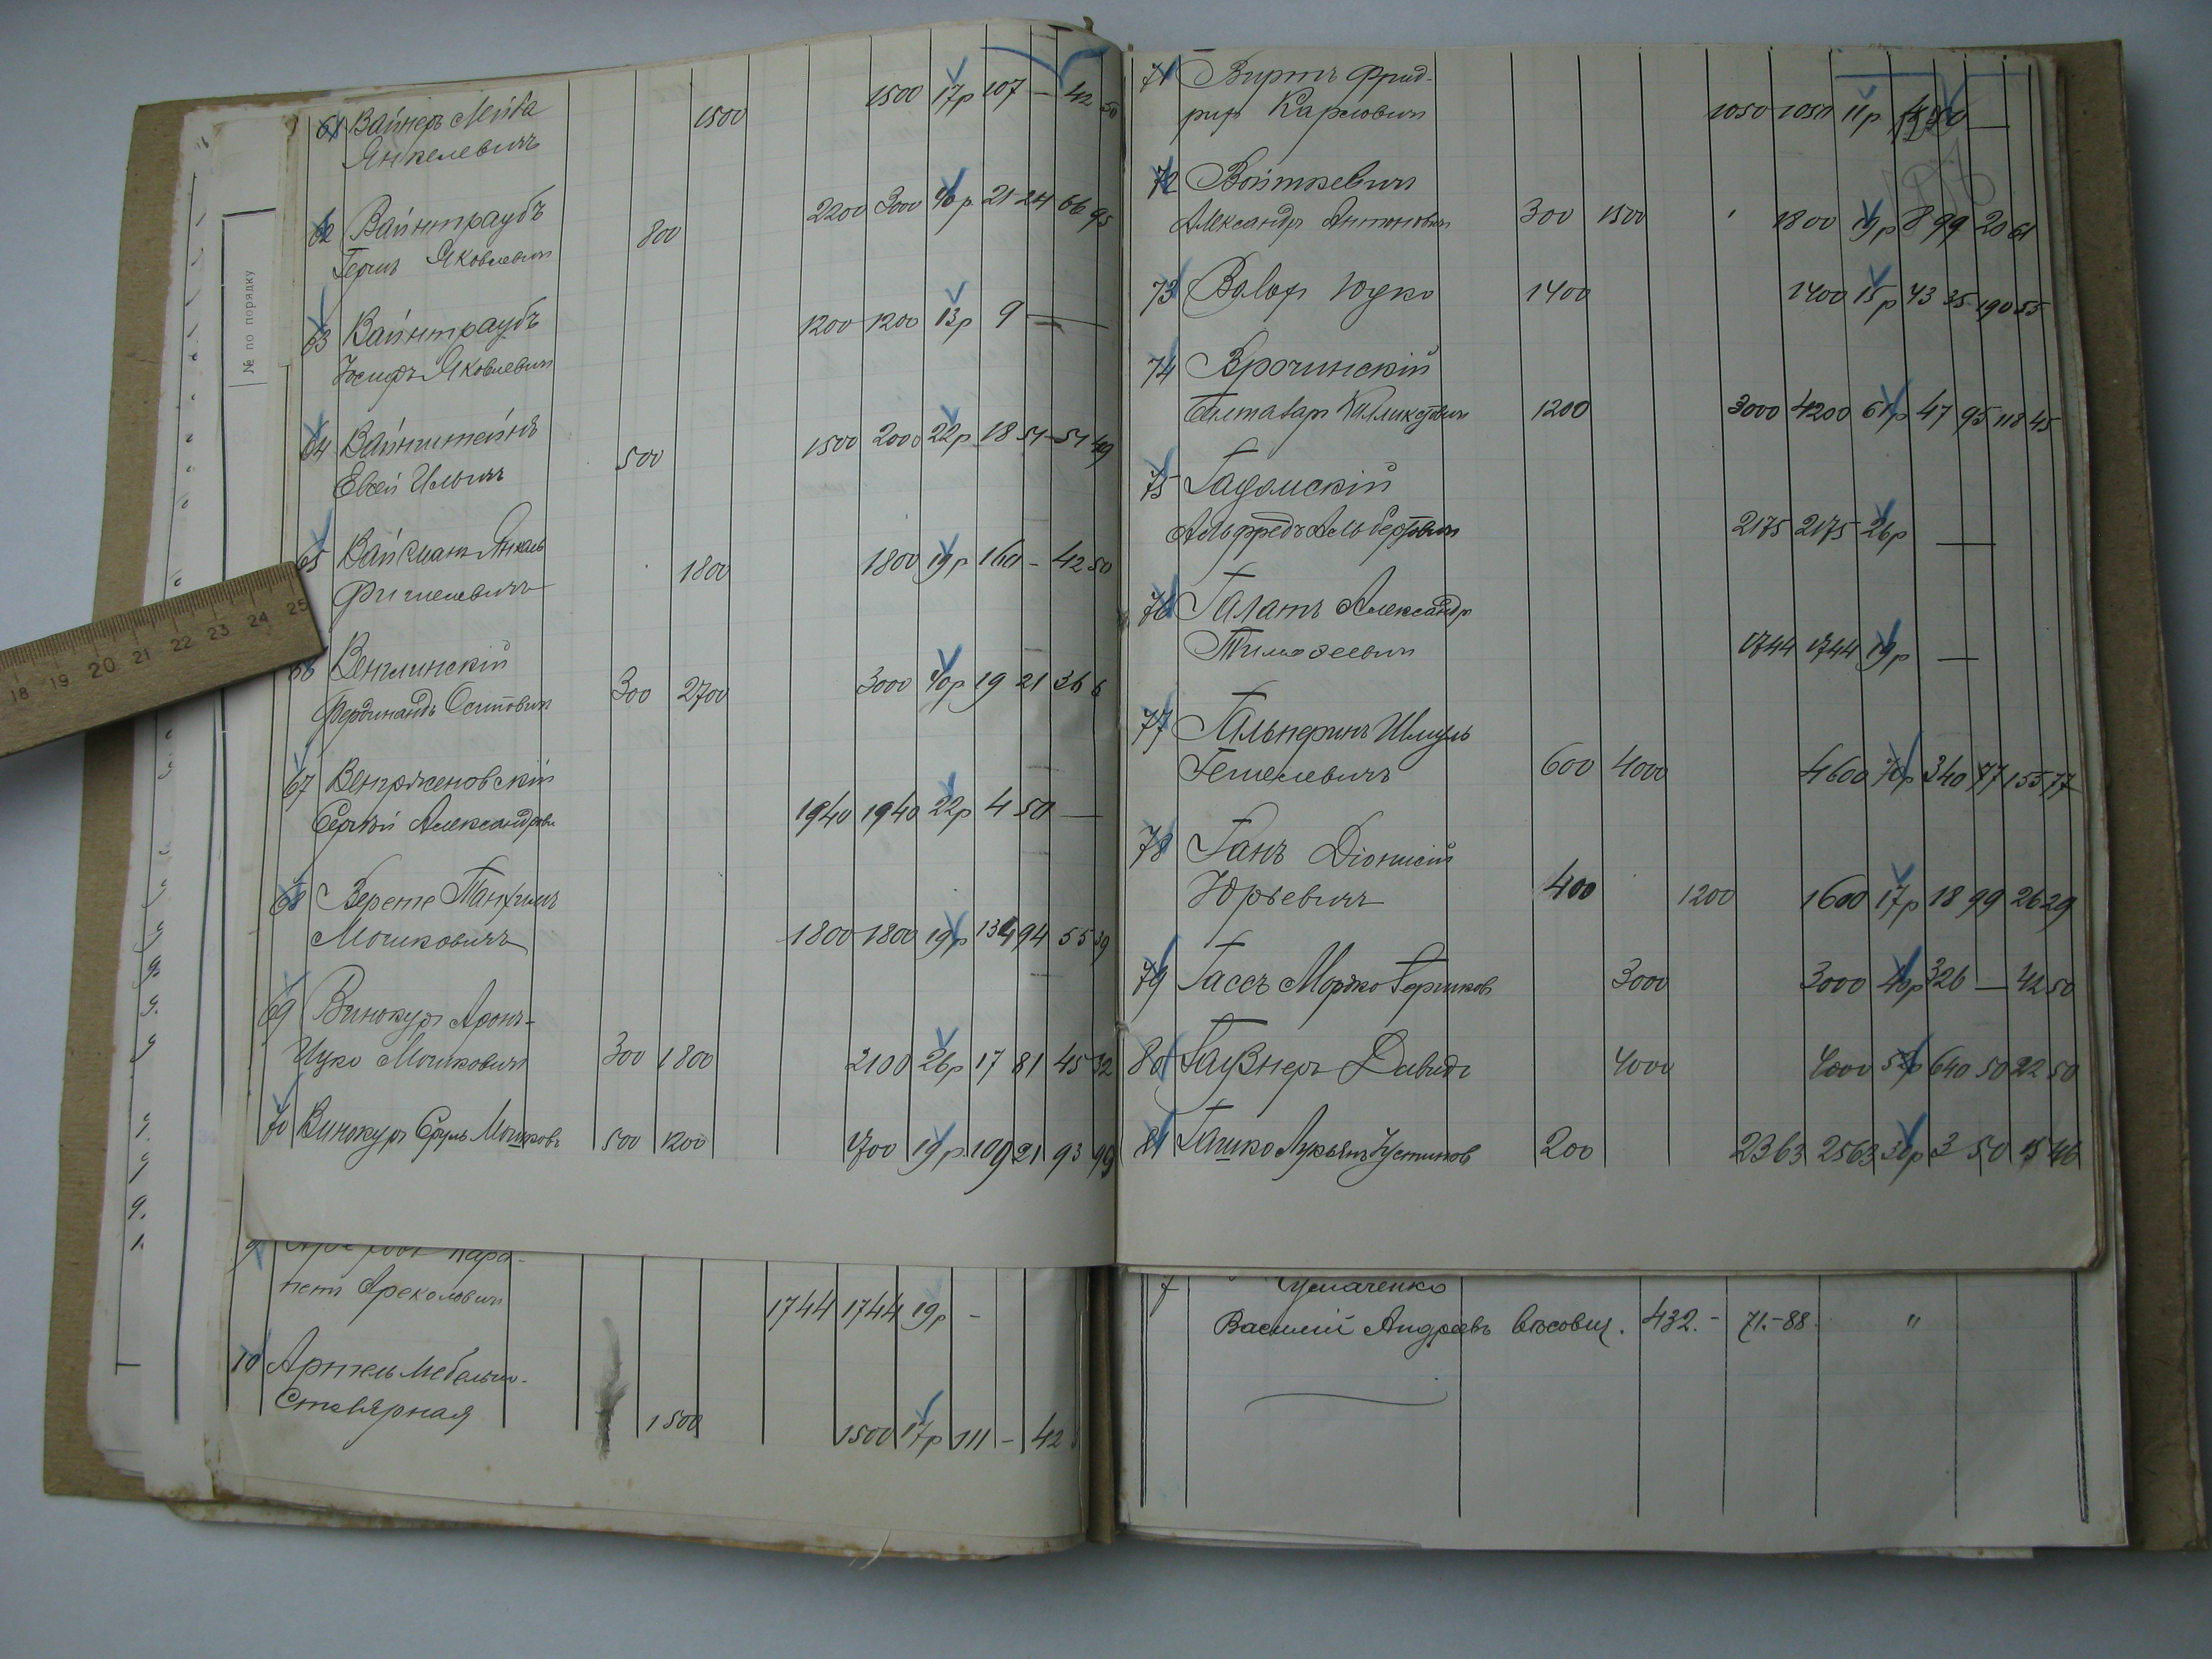 № по порядку
61 Вайнеръ Мейва 1500 1500 17р 107 — 42 50
Янкелевичъ
62 Вайнтраубъ 800 2200 3000 40р 21 24 66 95
Гершъ Яковлевичъ
63 Вайнтраубъ 1200 1200 13р 9 —
Іосифъ Яковлевичъ
64 Вайнштейнъ 500 1500 2000 22р 18 51 51 49
Евсей Ильичъ
65 Вайсманъ Янкель 1800 1800 19р 160 — 42 50
Фишелевичъ
66 Венглинскій
Фердинандъ Осиповичъ 300 2700 3000 40р 19 21 36 6
67 Венгрженовскій
Сергѣй Александрови 1940 1940 22р 4 50 —
68 Верете Панхилъ
Мошковичъ 1800 1800 19р 134 94 55 39
69 Винокуръ Аронъ-
Ицко Мошковичъ 300 1800 2100 26р 17 81 45 32
70 Винокуръ Сруль Мошковъ 500 1200 1700 19р 109 21 93 99
петъ
1744 1744 19р —
10 Артель Мебельно-
Столярная 1500 1500 17р 111 — 42
71 Виртъ Фрид-
рих Карловичъ 1050 1050 11р
72 Войткевичъ
Александръ Антоновичъ 300 1500 1800 19р 8 99 20 61
73 Волохъ Юдко 1400 1400 15р 43 35 190 55
74 Врочинскій
1200 3000 4200 61р 47 95 118 45
75 Гадомскій
Альфредъ Альбертовичъ 2175 2175 26р —
76 Галатъ Александръ
Тимофеевичъ 1744 1744 19р —
77 Гальперинъ Шмуль
Гешелевичъ 600 4000 4600 70р 340 77 155 77
78 Ганъ Діонисій
Юрьевичъ 400 1200 1600 17р 18 99 26 29
79 Гассъ Мордко Гершков 3000 3000 40р 326 — 42 50
80 Гаузнеръ Давидъ 4000 4000 52р 640 50 22 50
81 Гашко Лукьянъ Устинов 200 2363 2563 30р 3 50 15 46
7 Чумаченко
Василий Андреевъ вѣсовщ. 432.- 71.-88. "